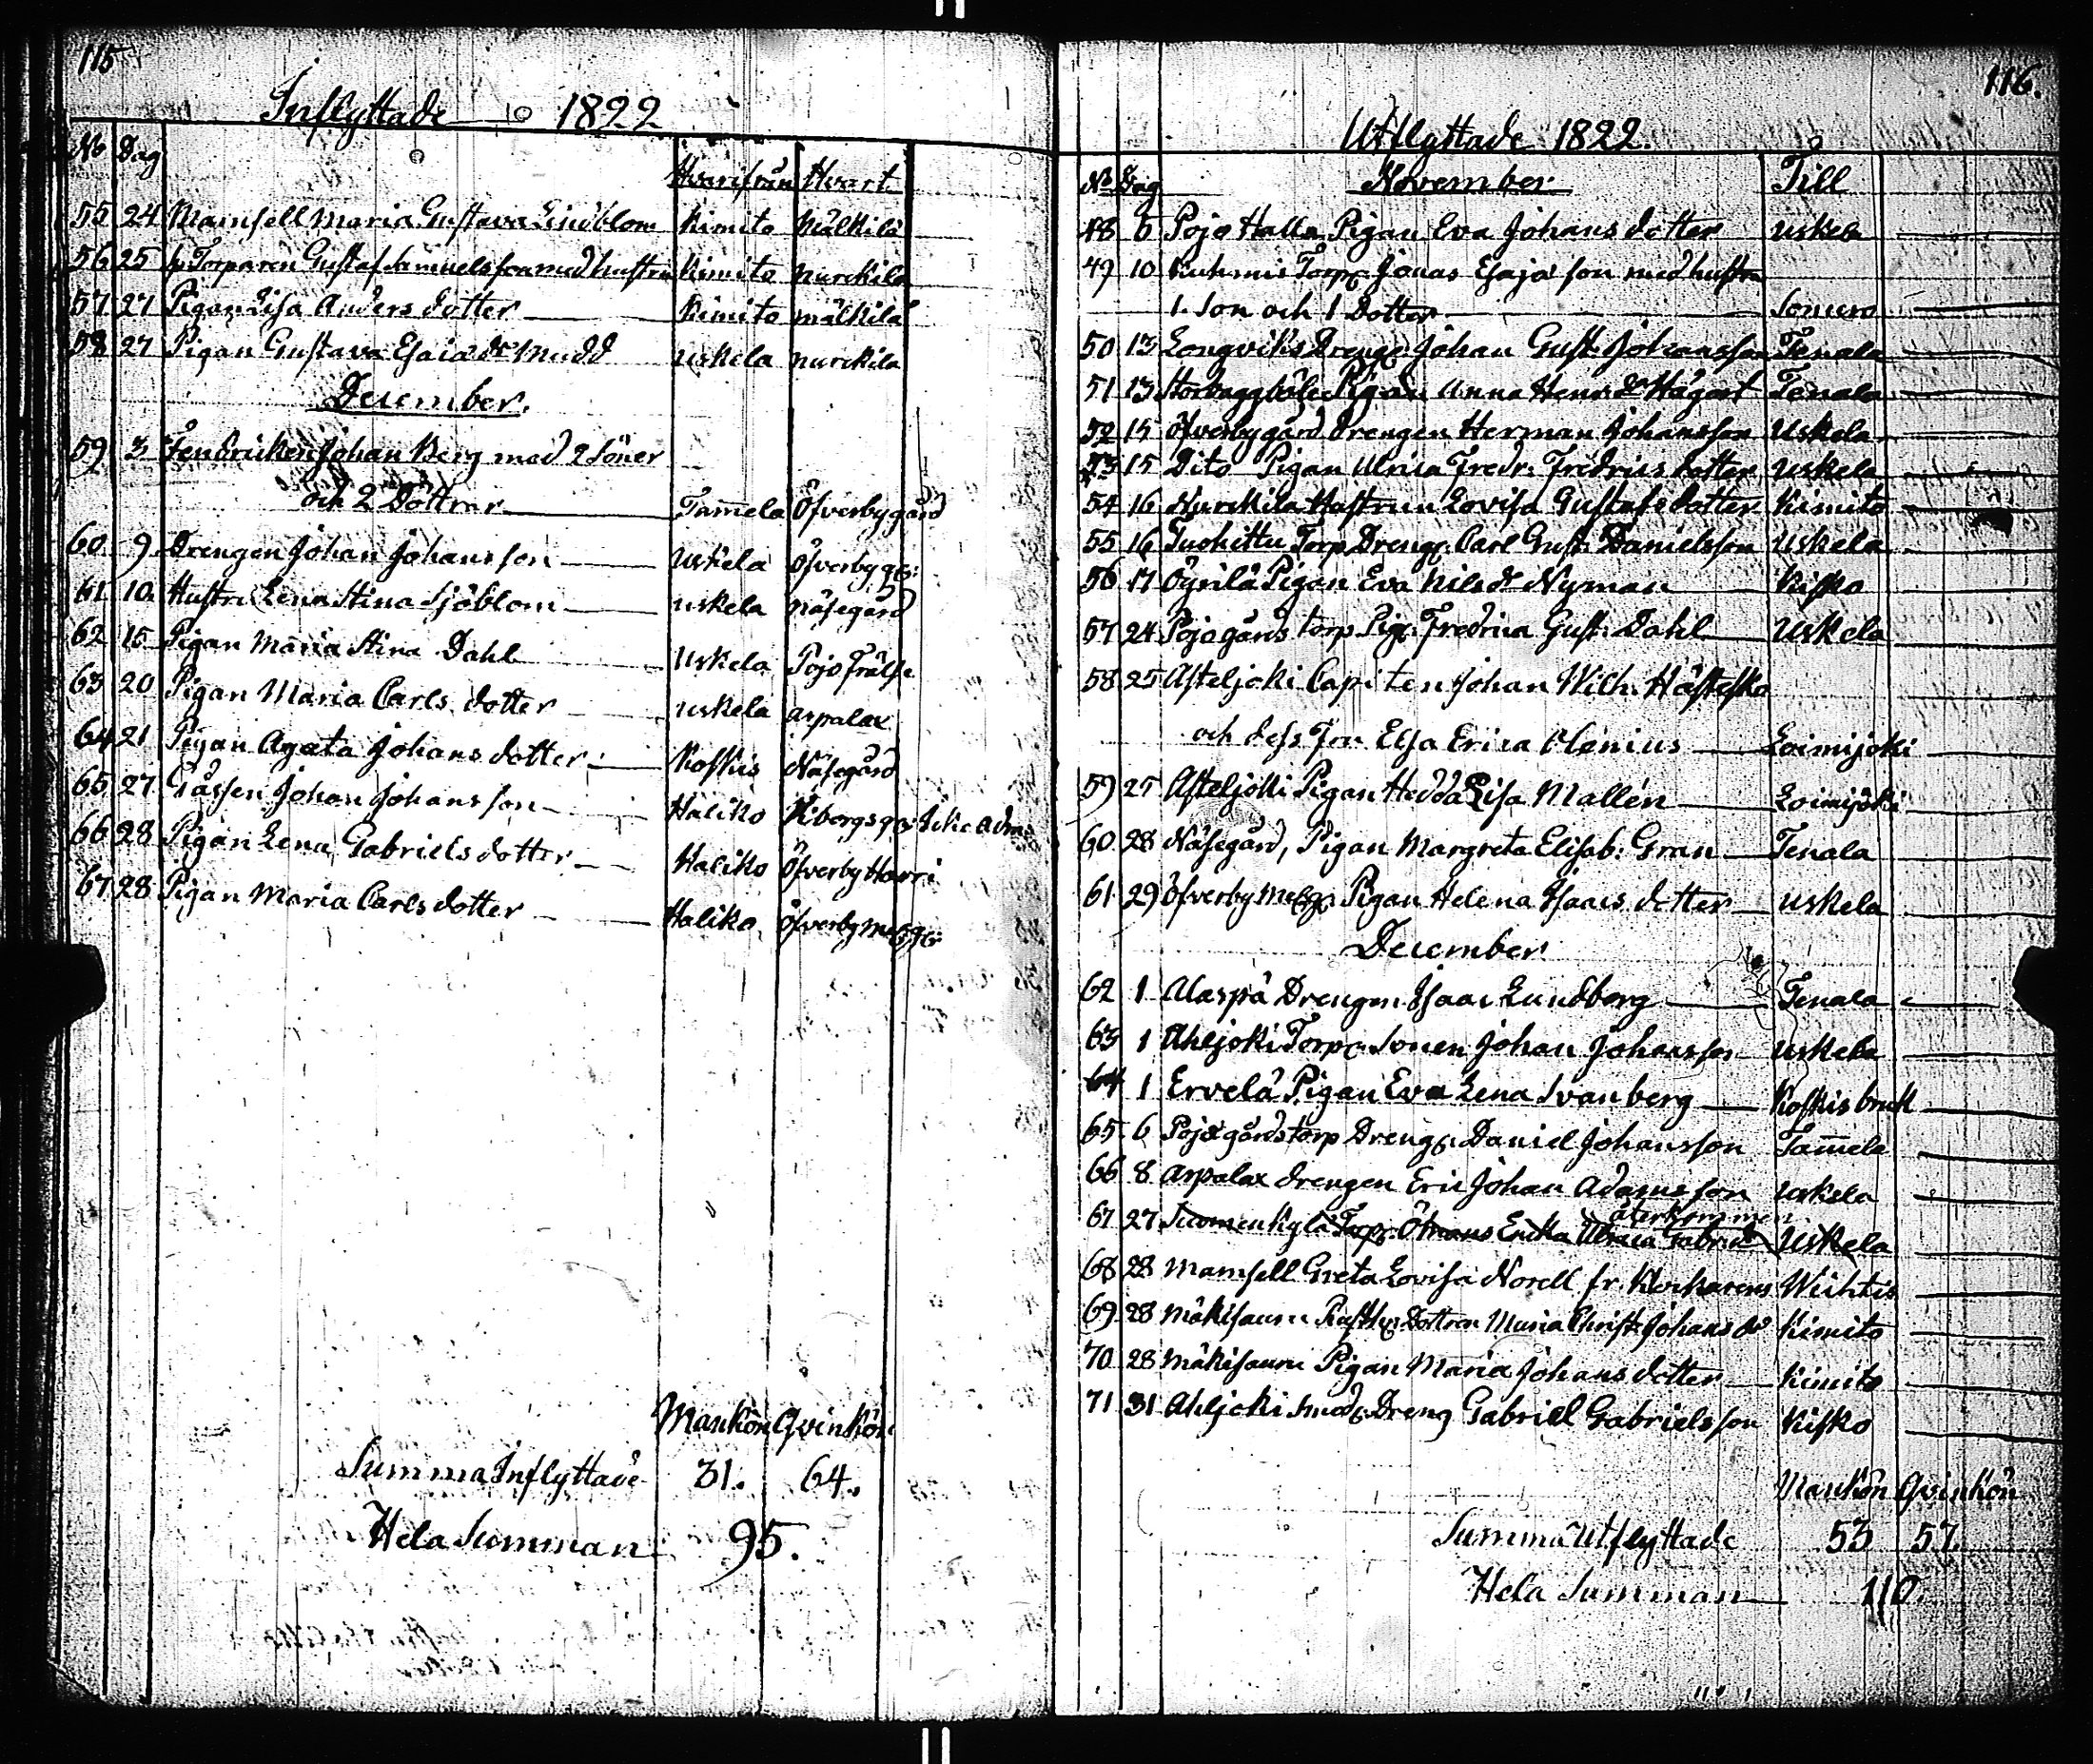 115
Inflyttade 1822
No Dag Hvarifrån Hvart
55 24 Mamsell Maria Gustava Lindblom Kimito Mälkilä
56 25 Torparen Gustaf Samuelsson med hustru Kimito Nurckila
57 27 Pigan Lisa Anders dotter Kimito Mälkilä
58 27 Pigan Gustava Esaiae dr Mudd Uskela Nurckila
December.
59 3 Fendricken Johan Berg med 2 Söner
och 2 Döttrar Tam̄ela Öfverbygård
60 9 Drengen Johan Johansson Uskela Öfverby gd:
61 10 Hustru Lena Stina Sjöblom Uskela Näsegård
62 15 Pigan Maria Stina Dahl Uskela Pojo frälse
63 20 Pigan Maria Carls dotter Uskela Arpalax
64 21 Pigan Agata Johans dotter Koskis Näsegård
65 27 Gåssen Johan Johansson Haliko Viborgs
66 28 Pigan Lena Gabriels dotter Haliko Öfverby Harri
67 28 Pigan Maria Carls dotter Haliko Öfverby
Mankön Qvinkön
Summa Inflyttade 31. 64.
Hela Summan 95.
116.
Utflyttade 1822.
No Dag November Till
48 6 Pojo Halla Pigan Eva Johans dotter Uskela
49 10 Kuhmis Torp: Jonas Esaja son med hustru
1. Son och 1 Dotter Somero
50 13 Longviks Dreng: Johan Gust. Johansson Tenala
51 13 Storbaggböle Pigan Anna Henr. dr Hägert Tenala
52 15 Öfverbygård Drengen Herman Johansson Uskela
53 15 Dito Pigan Ulrica Fredr: Fredrics dotter Uskela
54 16 Nurckila Hustrun Lovisa Gustafs dotter Kimito
55 16 Tuohittu Torp Dreng: Carl Gust: Danielsson Uskela
56 17 Öyrilä Pigan Eva Nils dr Nyman Kisko
57 24 Pojo gårds torp Pig: Fredrica Gust: Dahl Uskela
58 25 Asteljoki Capiten Johan Wilh. Hästesko
och dess Fru Elsa Erica Olenius Loimijoki
59 25 Asteljoki Pigan Hedda Lisa Mallén Loimijoki
60 28 Näsegård, Pigan Margreta Elisab: Gran Tenala
61 29 Öfverby Pigan Helena Isaacs dotter Uskela
December
62 1 Alaspä Drengen Isaac Lundberg Tenala
63 1 Ahljoki Torp: Sonen Johan Johansson Uskela
64 1 Ervelä Pigan Eva Lena Svanberg Koskis bruk
65 6 Pojo gårds torp Dreng: Daniel Johansson Tam̄ela
66 8 Arpalax drengen Eric Johan Adamsson Uskela
återkommen
67 27 Suomenkylä Torp: Öhmans Enka Ulrica Gabriels dr Uskela
68 28 Mamsell Greta Lovisa Norell fr. Klockarens Wichtis
69 28 Mäkisauru Dottren Maria Christ: Johans dr Kimito
70 28 Mäkisauru Pigan Maria Johans dotter Kimito
71 31 Ahljoki Smed: Dreng Gabriel Gabrielsson Kisko
Mankön Qvinkön
Summa Utflyttade 53 57.
Hela Summan 110.